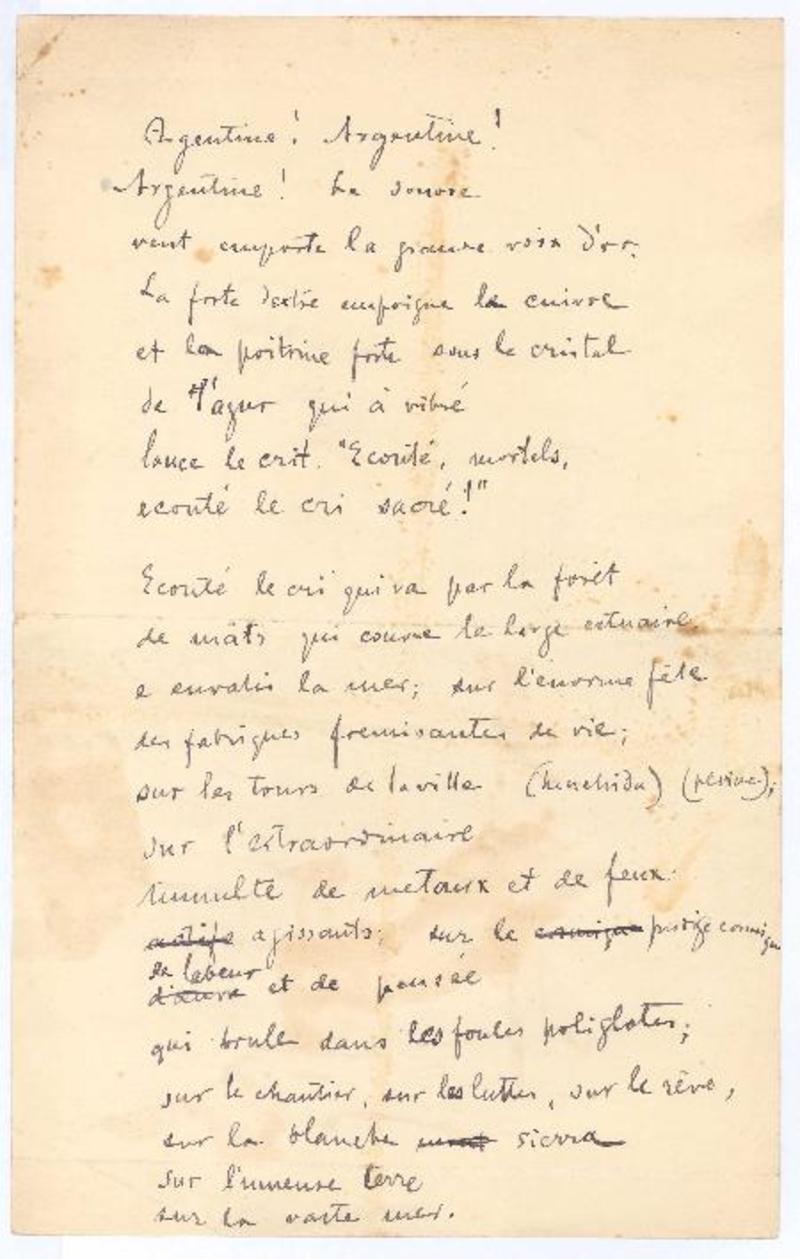 Argentine! Argentine!
Argentine! Le sonore
vent emporte la grande voix d'or.
La forte dextre empoigne le cuivre
et la poitrine forte sous le cristal
de l'azur qui à vibré
lance le crit. "Ecouté, mortels,
ecouté le cri sacré!"
Ecouté le cri qui va par la forêt
de mâts qui couvre le large estuaire
e envahis la mer; sur l'énorme fête
des fabriques fremisantes de vie;
sur les tours de la ville (henchida)
sur l'extraordinaire
tumulte de metaux et de feux
actifs agissants; sur le cosmique prodige cosmique
de labeur
d'œuvre et de pensée
qui brule dans les foules poliglotes;
sur le chantier, sur les luttes, sur le rêve,
sur la blanche sierra
sur l'immense terre
sur la vaste mer.